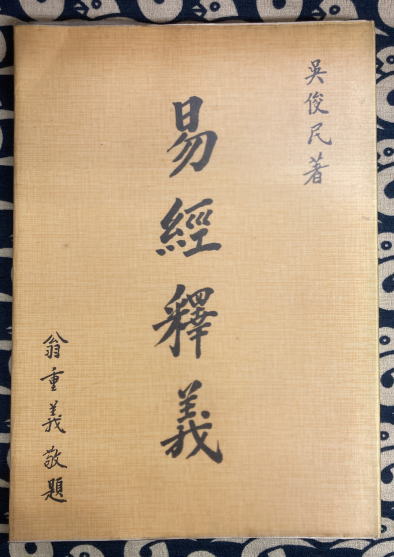 吳俊民著
易經釋義
翁重義敬題